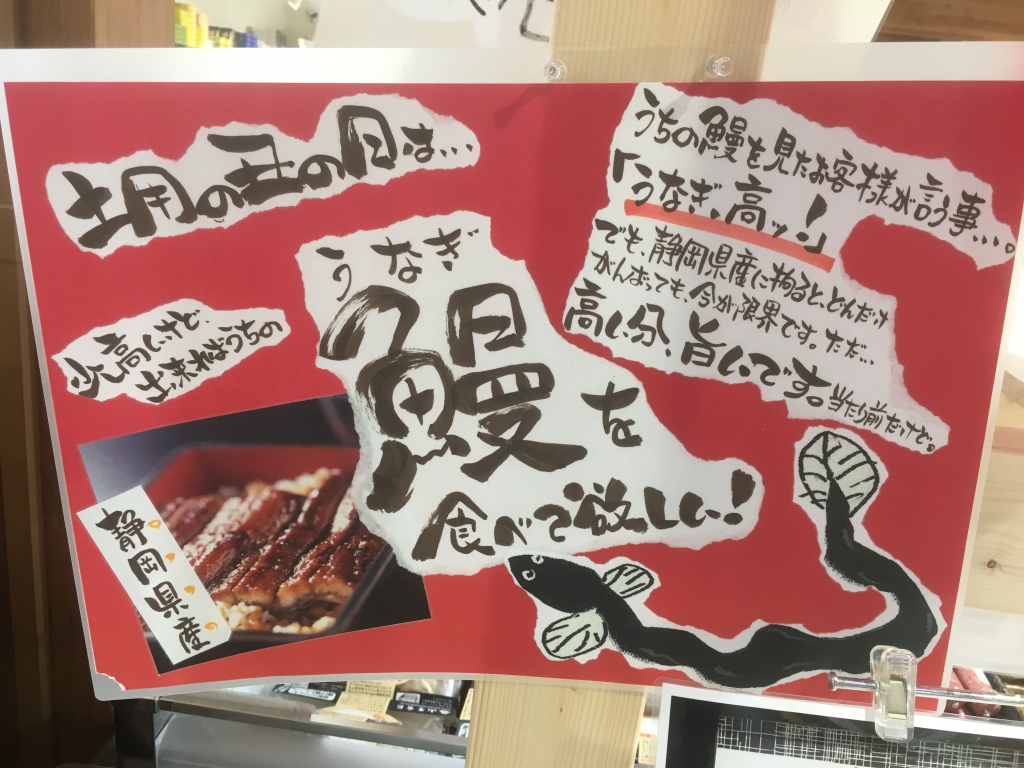 土用の丑の日は...
うなぎ
鰻を
食べて欲しい!
少し高いけど、
出来ればうちの
静岡県産
うちの鰻を見たお客様が言う事...。
「うなぎ、高ッ!」
でも、静岡県産に拘ると、どんだけ
がんばっても、今が限界です。ただ...
高い分、旨いです。当たり前だけど。